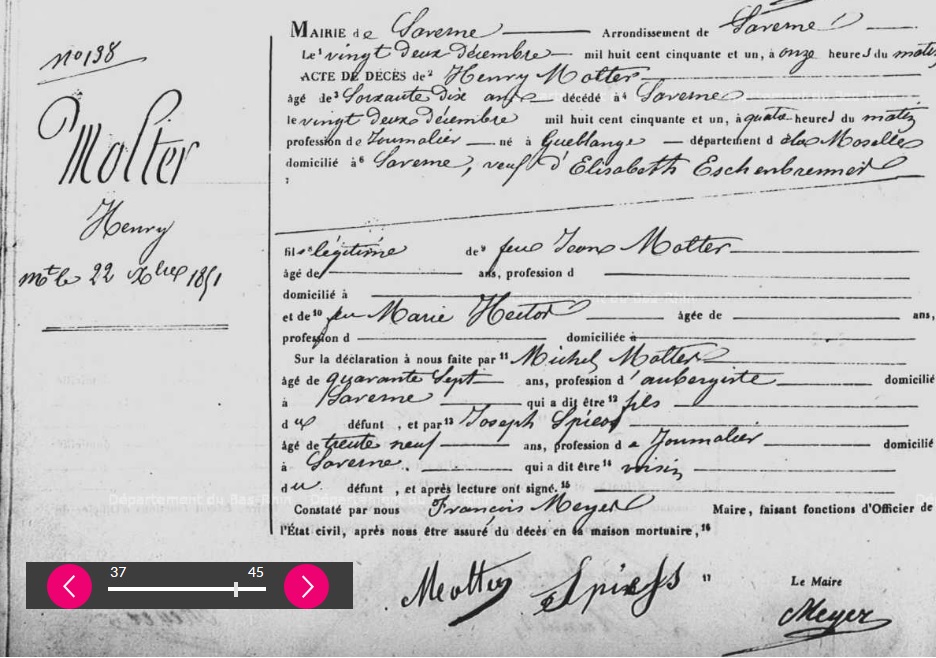 no 138
Molter
Henry
mt le 22 Xbre 1851
MAIRIE de Saverne Arrondissement de Saverne
Le 1 vingt deux décembre mil huit cent cinquante et un, à onze heures du matin
ACTE DE DÉCÈS de 2 Henry Motter
âgé de 3 Soixante dix ans décédé à 4 Saverne
le vingt deux décembre mil huit cent cinquante et un, à quatre heures du matin
profession de Journalier né à Gueblange département de la Moselle
domicilié à 6 Saverne, veuf d'Elisabeth Eschenbrenner
7
fils 8 légitime de 9 feu Jean Motter
âgé de ans, profession d
domicilié à
et de 10 feu Marie Hector âgée de ans,
profession d domiciliée à
Sur la déclaration à nous faite par 11 Michel Motter
âgé de quarante Sept ans, profession d'aubergiste domicilié
à Saverne qui a dit être 12 fils
du défunt, et par 13 Joseph Spiess
âgé de trente neuf ans, profession de Journalier domicilié
à Saverne. qui a dit être 14 voisin
du défunt, et après lecture ont signé. 15
Constaté par nous François Meyer Maire, faisant fonctions d'Officier de
l'État civil, après nous être assuré du décès en la maison mortuaire, 16
Spiess 17 Le Maire
Meyer
Département du Bas-Rhin
37 45